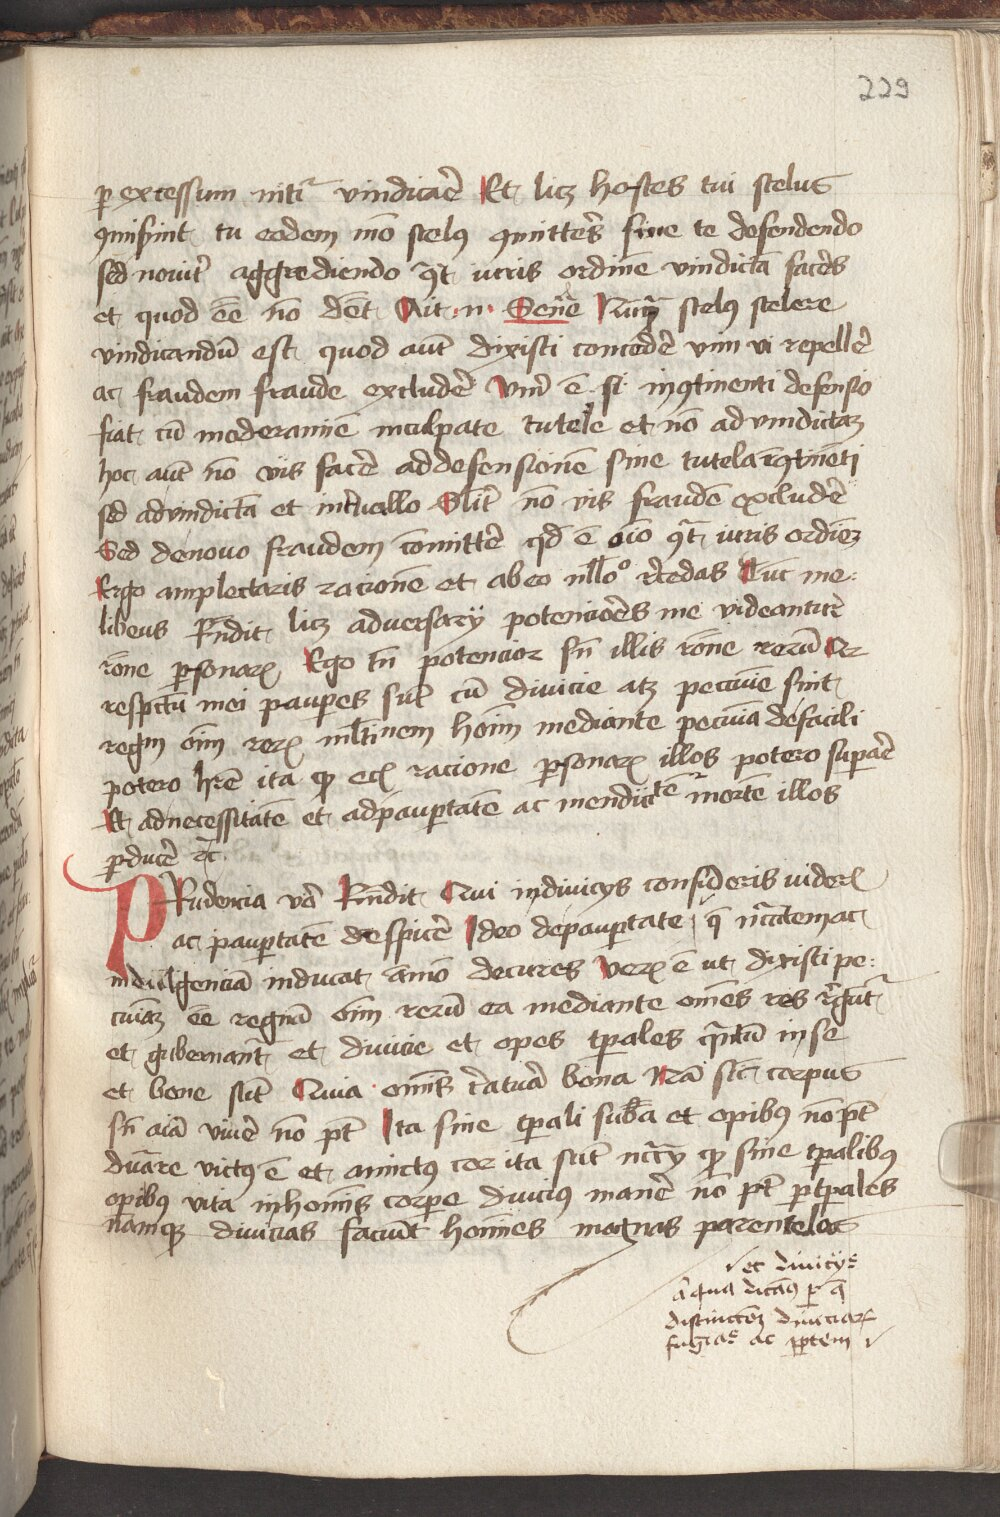 229
p excessum nitr̄ vindicaē Et licz hostes tui scelus
9misint tu eodem mō scelus 9mitteˢ siue te defendendo
sed nouit͛ aggrediendo 9t͛ iuris ordinē vindictā faceˢ
et quod eē nō det̄ Ait .n. Senē Nūq̄ scelus scelere
vindicandū est quod aut̄ dixisti concedē vim vi repellē
ac fraudem fraude excludē Veř ē si in9tinenti defensio
fiat cū moderamīe inculpate tutele et nō ad vindictaꝫ
hoc aut̄ nō vis facē ad defensionē siue tutelā in9tinēti
sed ad vindictā et intuallo Slīt͛ nō vis fraudē excludē
Sed denouo fraudem cōmittē qd ē oīo 9t͛ iuris ordiēꝫ
Ergo amplectaris racionē et ab eo nll̄o recedas Tūc me:
libeus Rn̄dit licz adversarij potencioēs me videantur
rōne psonarꝫ Ego tn̄ potencior sū illis rōne rerū Qr
respectu mei paupes sut̄ cū diuicie atqꝫ pecunie sint
regīn oīm rerꝫ ml̄titudinem hoīm mediante pecuīa defacili
potero hr̄e ita qꝫ ecꝫ racione psonarꝫ illos potero supaē
Et ad necessitatē et ad paupertatē ac mendicitatē mortē illos
pducē ⁊c̄.
PRudencia vō Rn̄dit Qui in diuicijs consideris viderꝫ
ac paupertatē despicē Ideo de paupertate
indulgenciā inducat decures Verꝫ ē ut dixisti pe:
cuniā eē regnā oīm rerū ea mediante omēs res regūt͛
et gubernant͛ et diuicie et opes tpales q̄ntū in se
et bone sūt Quia omīs creatura bona Nā sic corpus
sn̄ aīa viuē nō pt̄ Ita sine tpali sub̄a et opibus nō pt̄
durare victus ē et amictus cor ita sut̄ nccīꝫ qꝫ sine tpalibus
opibus vita in homīs corpe diucius manē nō pt̄ p tpales
namqꝫ diuicias faciūt homīes magnas parentelas
et diuicijs
a qua dicam9 p q̄
distinctōeꝫ diuiciarꝫ
fugias ac ptem